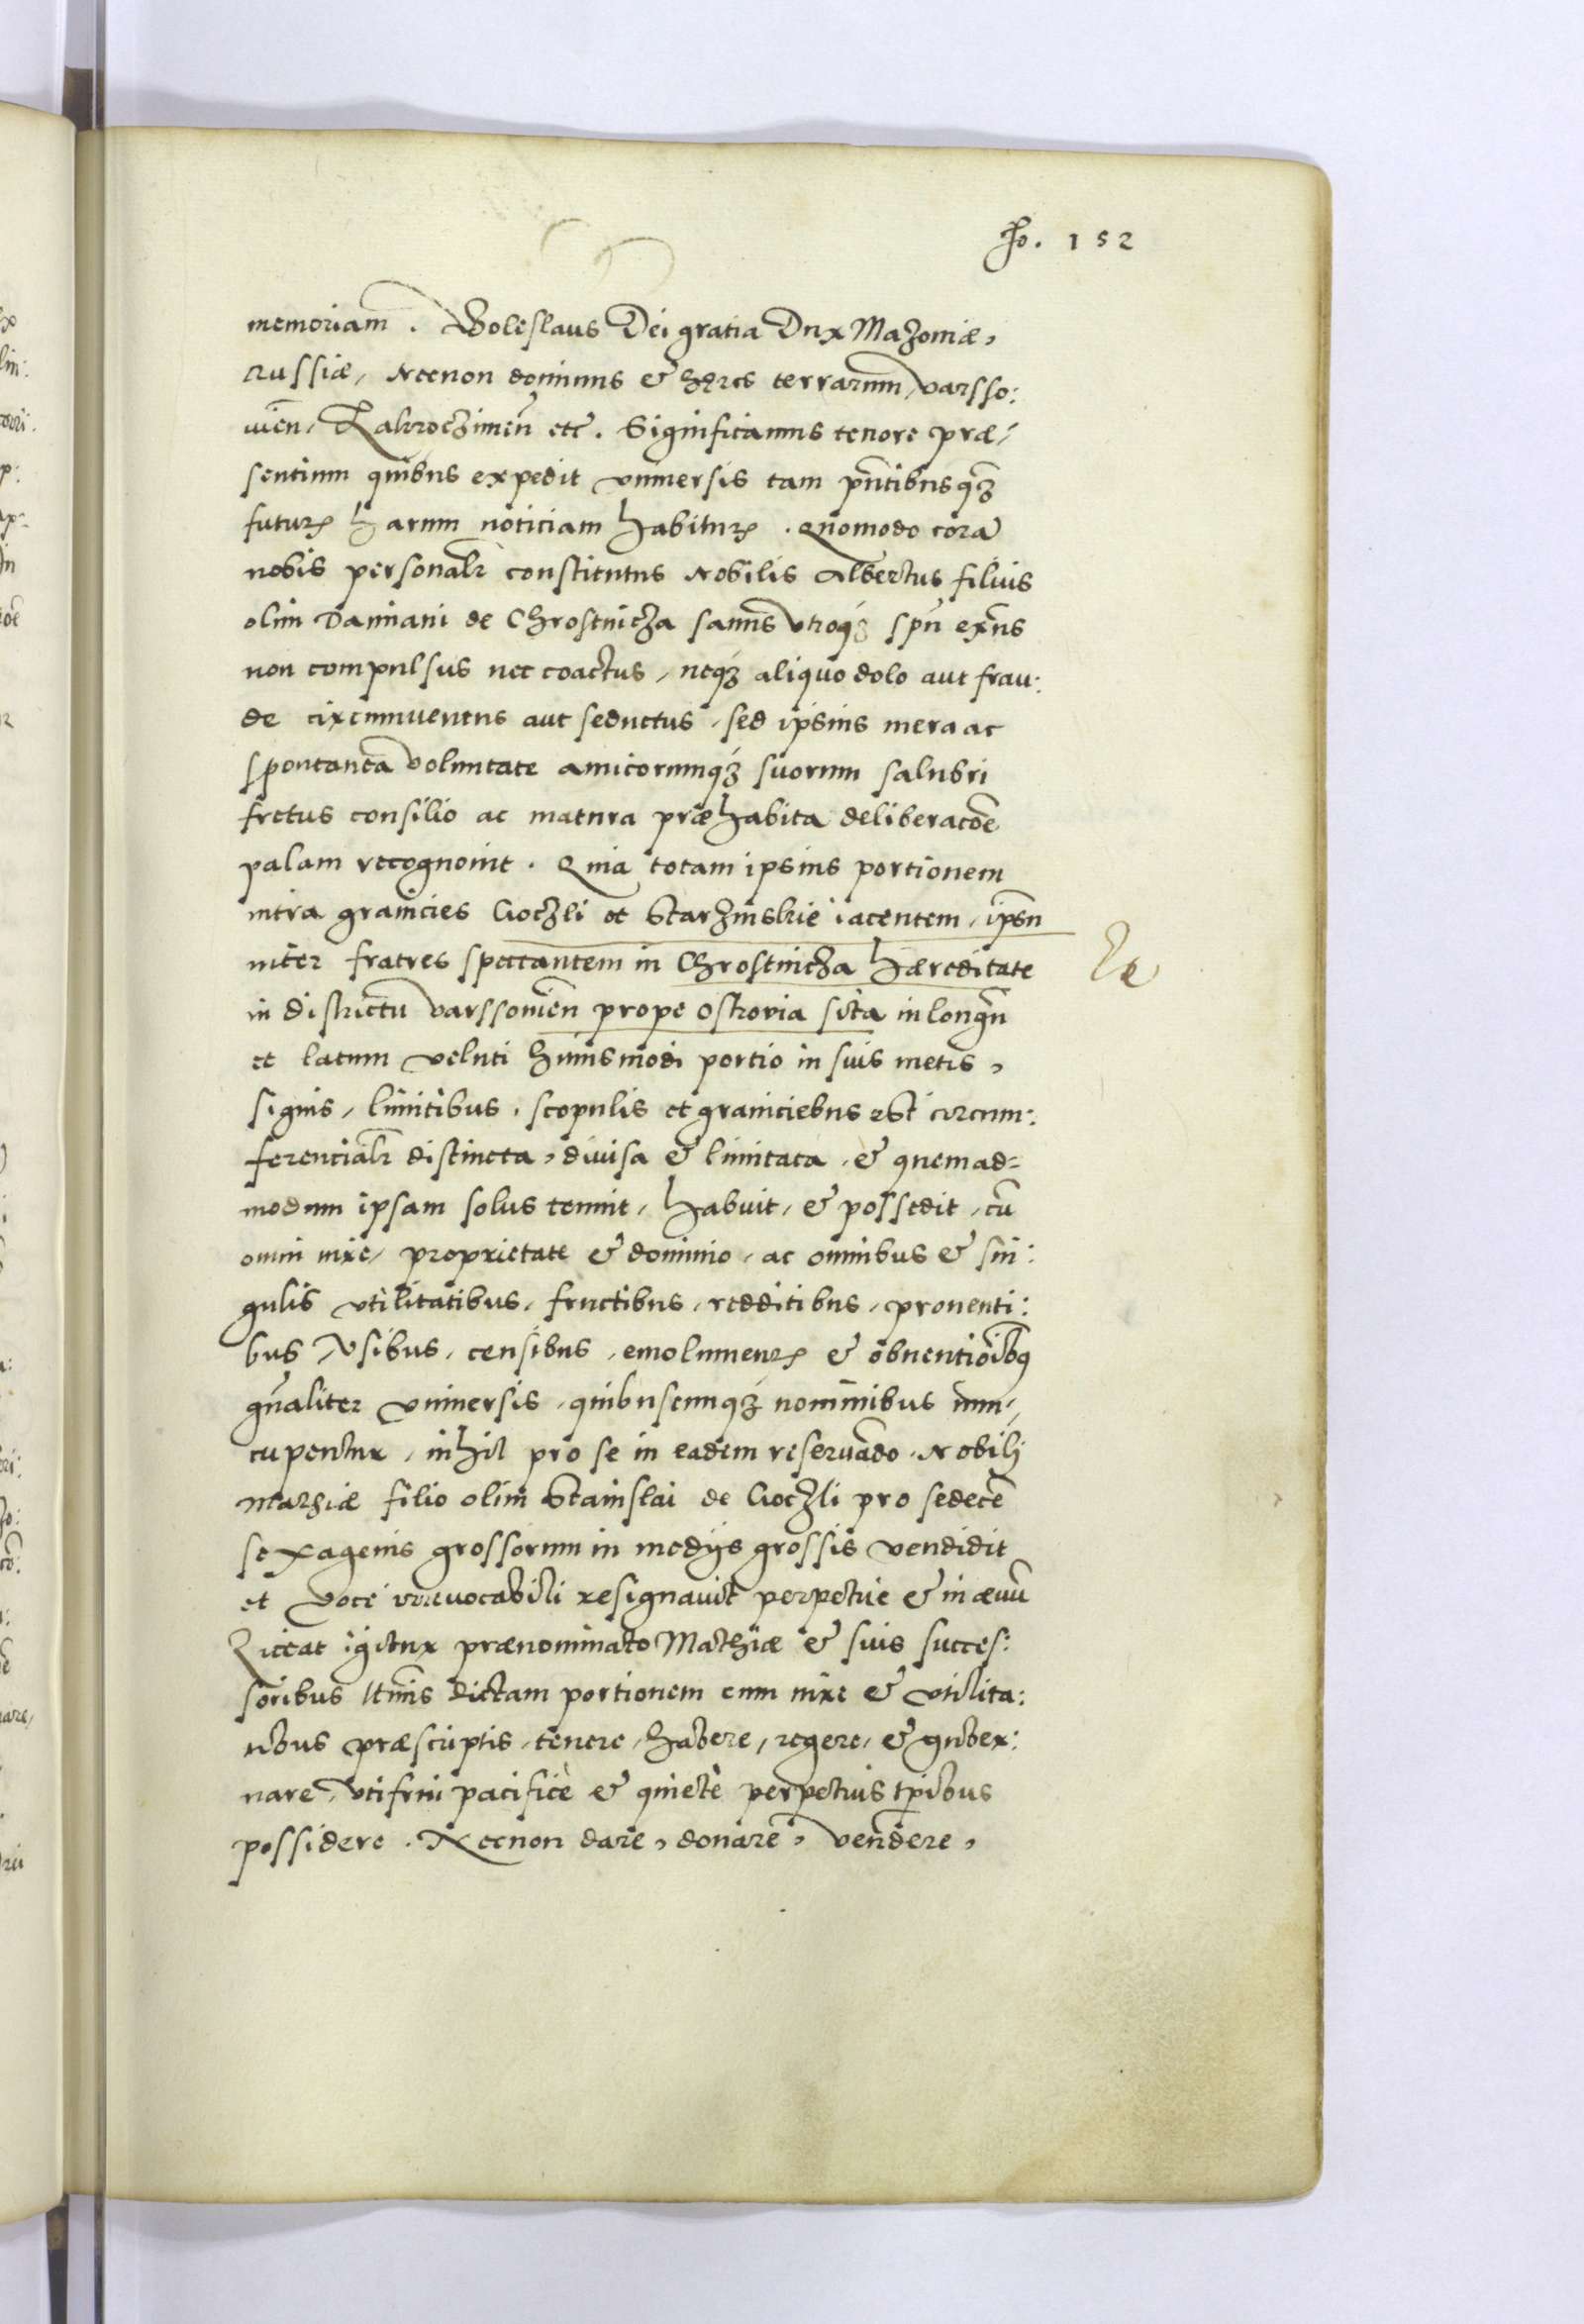 Fo. 152
memoriam. Boleslaus Dei gratia Dux Mazoniæ,
Russiæ, Necnon dominus & hęres terrarum, varsso:
uień, Zakroczimeń etc̃. Significamus tenore præ,
sentium quibus expedit vniuersis tam pñtibus qz̃
futuris harum noticiam habituris. Quomodo corã
nobis personalr̃ constitutus Nobilis Albertus filius
olim Damiani de Chrostnicza sanus vtroqz spũ exñs
non compulsus nec coactus, neqz aliquo dolo aut frau:
de circumuentus aut seductus, sed ipsius mera ac
spontanea voluntate amicorumqz suorum salubri
fretus consilio ac matura præhabita deliberacõe
palam recognouit. Quia totam ipsius portionem
intra granicies Goczli et Starzinskie iacentem, ipsũ
inter fratres spectantem in Chrostnicza hæreditate
in districtu varssouień prope Ostrovia sita in longũ
et latum veluti huiusmodi portio in suis metis,
signis, limitibus, scopulis et graniciebus est circum:
ferencialr̃ distincta, diuisa & limitata, & quemad=
modum ipsam solus tenuit, habuit, & possedit, cũ
omni iure, proprietate & dominio, ac omnibus & sin:
gulis vtilitatibus, fructibus, redditibus, prouenti:
bus, Vsibus, censibus, emolumentis & obuentioĩbus
gñaliter vniuersis, quibuscumqz nominibus nun,
cupentur, nihil pro se in eadem reseruãdo, Nobilj
Mathiæ filio olim Stanislai de Goczli pro sedecẽ
sexagenis grossorum in medijs grossis vendidit
et voce irreuocabili resignauit perpetue & in æuũ
Liceat igitur prænominato Mathiæ & suis succes:
soribus ltĩmis dictam portionem cum iure & vtilita:
tibus præscriptis, tenere, habere, regere, & guber:
nare, vtifrui pacificè & quietè perpetuis tp̃ribus
possidere. Necnon dare, donare, vendere,